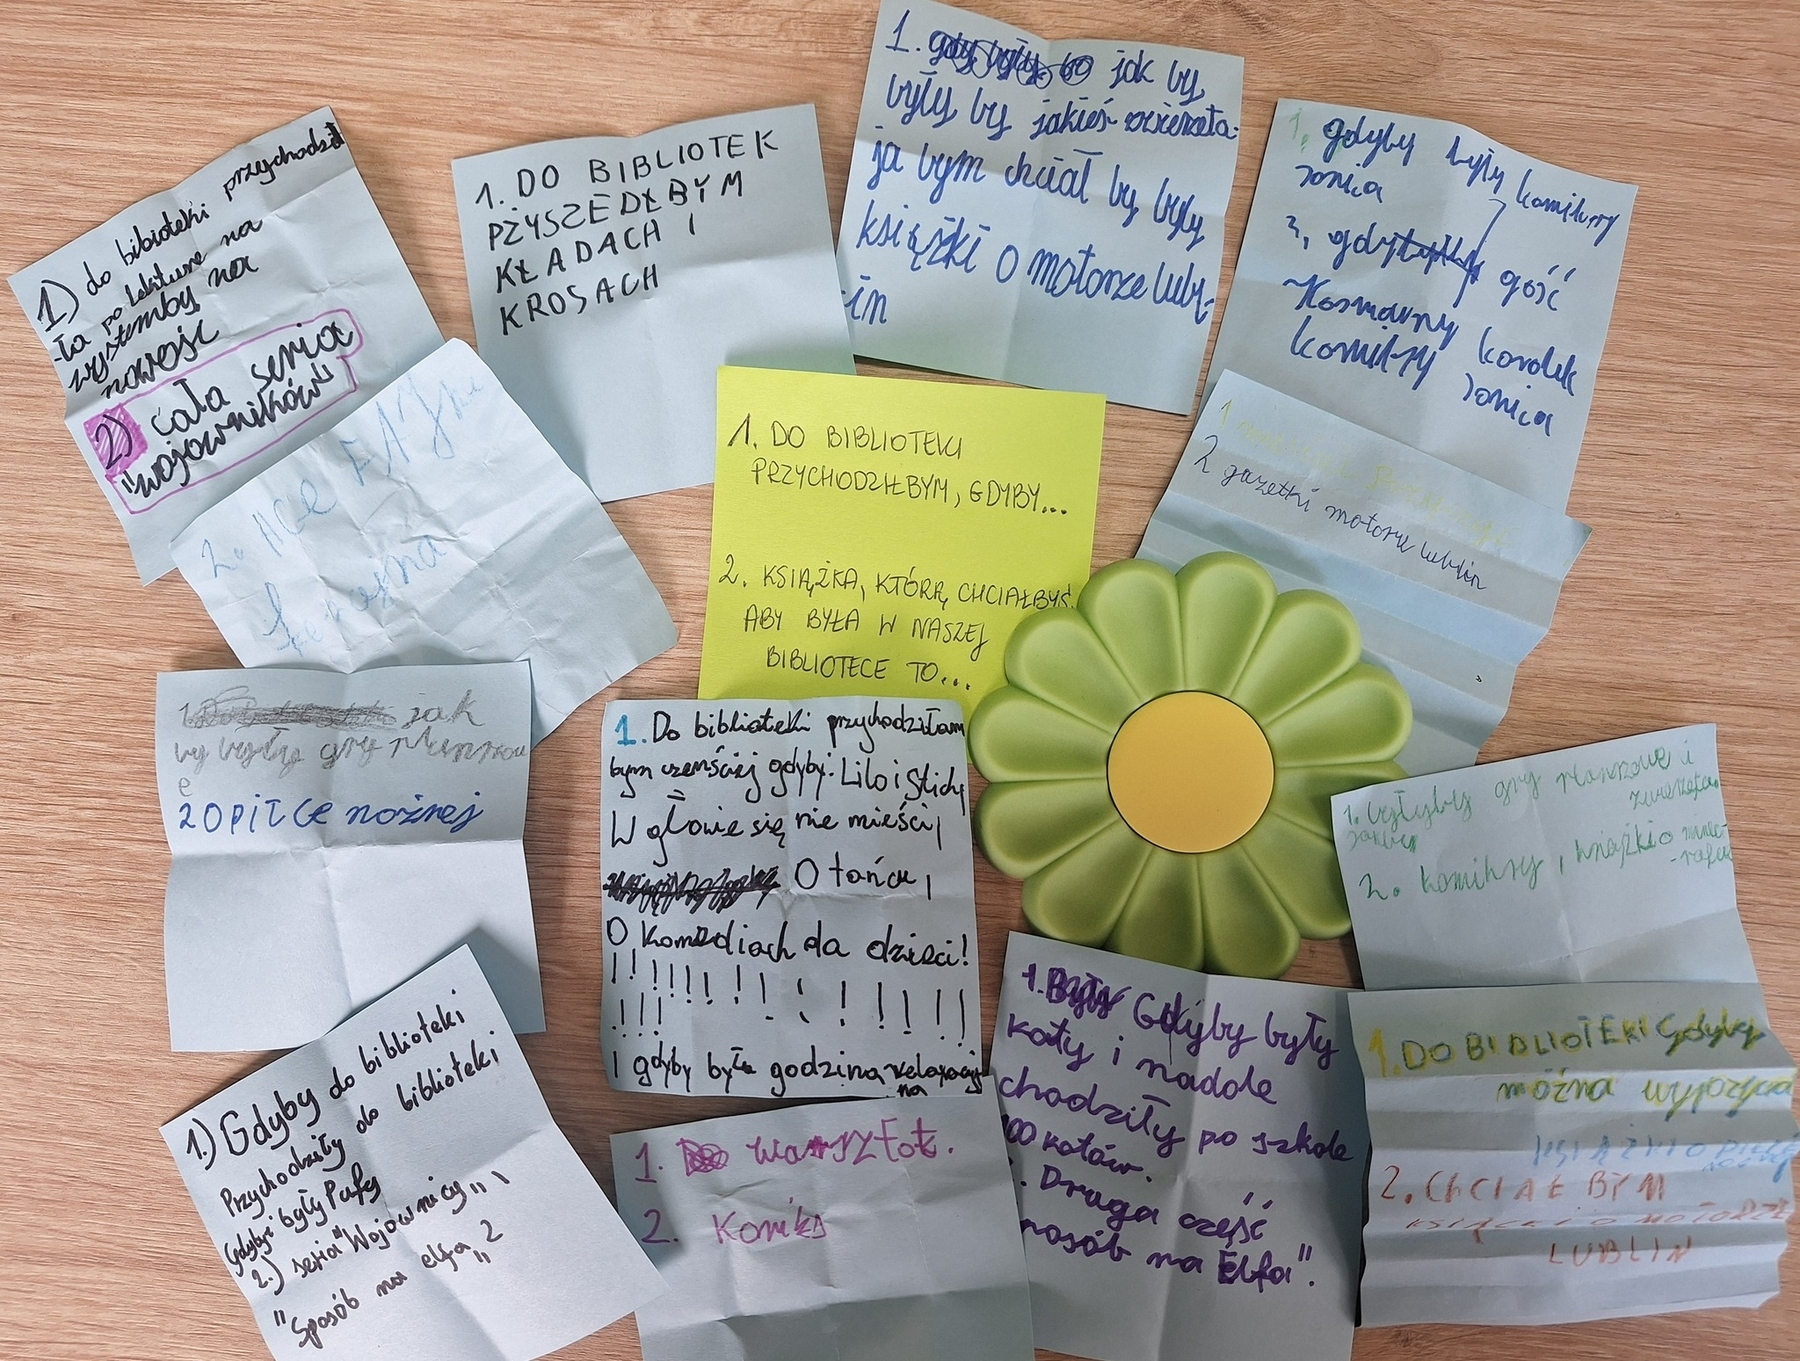 1) do bibioteki przychodził
-ła po lekture na
wystemby na
nowość
2) cała seria
"wojowników"
1. DO BIBLIOTEK
PŻYSZEDŁBYM
KŁADACH I
KROSACH
1. jak by
były by jakieś zwierzęta
ja bym chciał by były
książki o motorze lubl-
in
1. gdyby były komiksy
sonica
2, gość
Kosmarny karolek
komiksy sonica
2.
1. DO BIBLIOTEKI
PRZYCHODZIŁBYM, GDYBY...
2. KSIĄŻKA, KTÓRĄ CHCIAŁBYŚ,
ABY BYŁA W NASZEJ
BIBLIOTECE TO...
1
2 gazetki motoru lublin
1. jak
by były gry planszow
e
2 O PIŁCE nożnej
1. Do biblioteki przychodziłam
bym czenściej gdyby: Lilo i Stich,
W głowie się nie mieści,
O tańcu,
O, Komediach da dzieci!
! ! ! ! ! ! ! ! ! ! ! ! !
! ! !
I gdyby była godzina relaxacyj
na
1. byłyby gry planszowe i
jakieś zwierzęta
2. komiksy i książki o minec-
-rafcie
1.) Gdyby do biblioteki
Przychodziły do biblioteki
gdyby były Pufy
2.) seria "Wojownicy",
"Sposób na elfa 2"
1. warsztat.
2. Komiks
1. Gdyby były
koty i nadole
chodziły po szkole
100 kotów.
. Druga część
"sposób na Elfa".
1. DO BIBLIOTEKI Gdyby
można wypożyca
KSIĄŻKI O PIŁCE
NOŻNEJ
2. CHCIAŁ BYM
KSIĄŻKI O MOTORZE
LUBLIN